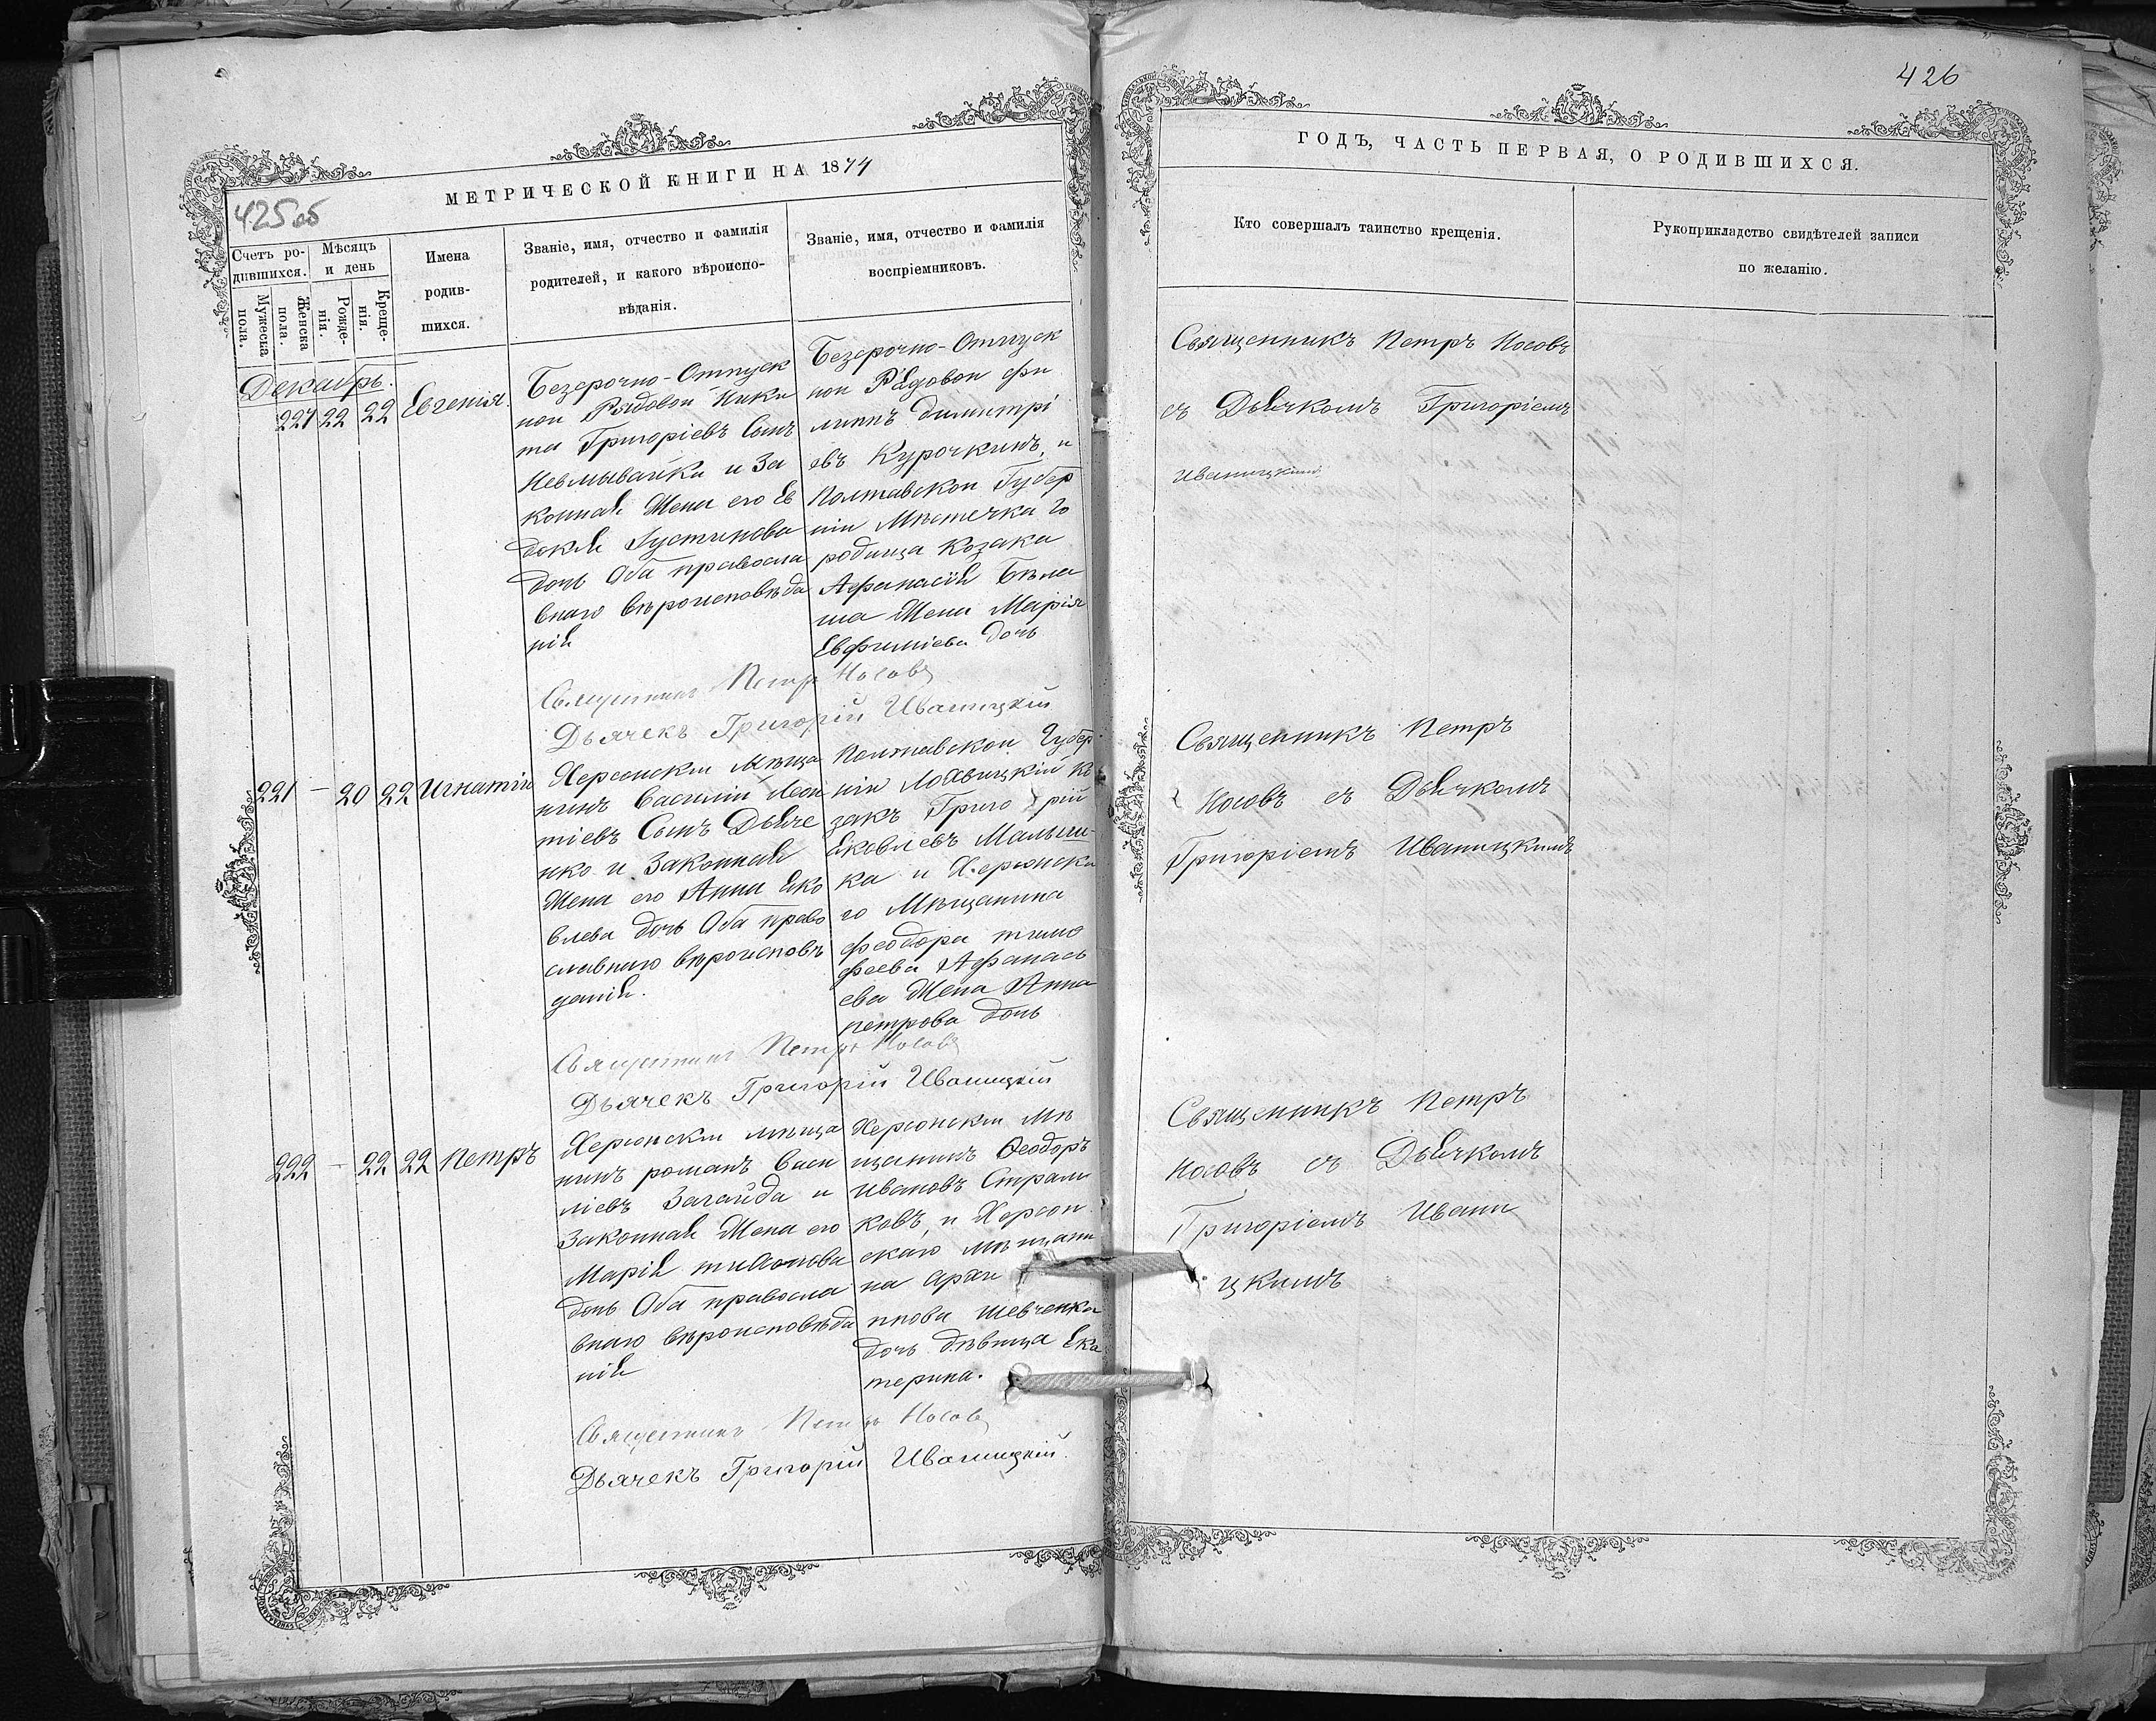 МЕТРИЧЕСКОЙ КНИГИ НА 1874
425об
Счетъ ро-
дившихся.
Мѣсяцъ
и день
Имена
родив-
шихся.
Званіе, имя, отчество и фамилія
родителей, и какого вѣроиспо-
вѣданія.
Званіе, имя, отчество и фамилія
воспріемниковъ.
Мужеска
пола.
Женска
пола.
Рожде-
нія.
Креще-
нія.
Декабрь.
227 22 22 Евгенія.
Безсрочно-Отпуск
ной Рядовой Ники
та Григоріевъ Сынъ
Невмывайка и За
конная Жена его Ев
докія Густинова
дочь Оба правосла
внаго вѣроисповѣда
нія
Безсрочно-Отпуск
ной Рядовой Фи
липпъ Димитрі
евъ Курочкинъ, и
Полтавской Губер
ніи Мѣстечка Го
родища Козака
Афанасія Бѣла
ша Жена Марія
Евфиміева дочь
Священникъ Петръ Носовъ
Дьячекъ Григорій Иваницкій
221 – 20 22 Игнатій
Херсонскій Мѣща
нинъ Василій Леон
тіевъ Сынъ Дьяче
нко и Законная
Жена его Анна Яко
влева дочь Оба право
славнаго вѣроисповѣ
данія.
Полтавской Губер
ніи Лохвицкій Ко
закъ Григорій
Яковлевъ Малыш-
ка и Херсонска
го Мѣщанина
Феодора Тимо
феева Афанась
ева Жена Анна
Петрова дочь
Священникъ Петръ Носовъ
Дьячекъ Григорій Иваницкій
222 – 22 22 Петръ
Херсонскій мѣща
нинъ романъ Васи
ліевъ Загайда и
Законная Жена его
Марія
дочь Оба правосла
внаго вѣроисповѣда
нія
Херсонскій Мѣ
щанинъ Ѳеодоръ
Ивановъ Страш
ковъ, и Херсон
скаго мѣщани
на
Шевченка
дочь дѣвица Ека
терина.
Священникъ Петръ Носовъ
Дьячекъ Григорій Иваницкій.
426
ГОДЪ, ЧАСТЬ ПЕРВАЯ, О РОДИВШИХСЯ.
Кто совершалъ таинство крещенія.
Рукоприкладство свидѣтелей записи
по желанію.
Священникъ Петръ Носовъ
съ Дьячкомъ Григоріемъ
Иваницкимъ
Священникъ Петръ
Носовъ съ Дьячкомъ
Григоріемъ Иваницкимъ
Священникъ Петръ
Носовъ съ Дьячкомъ
Григоріемъ Ивани
цкимъ